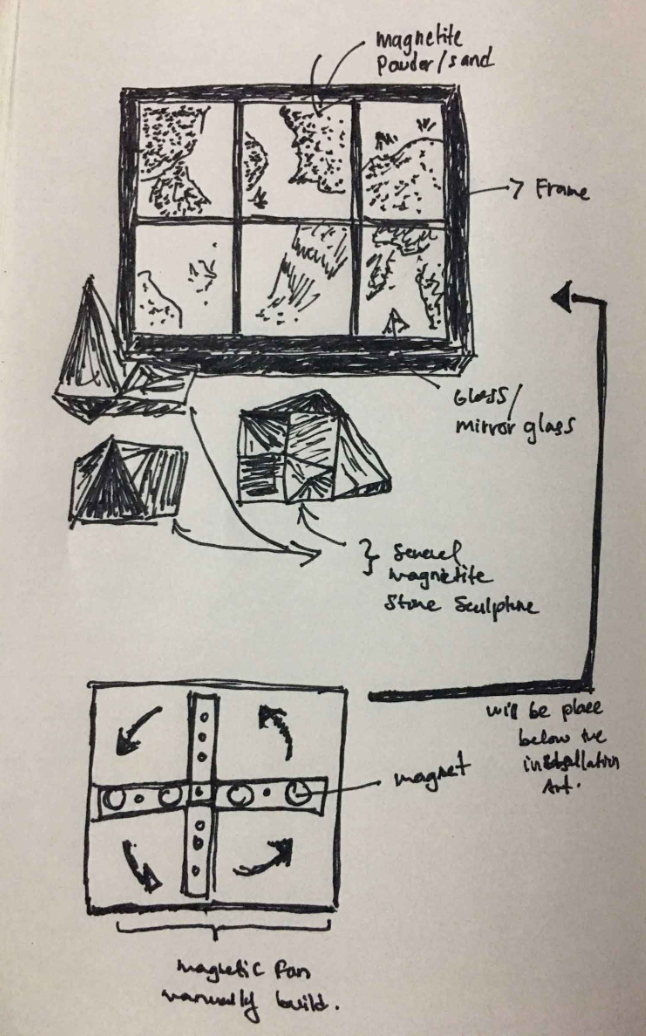 magnetite
Powder/sand
Frame
Glass/
mirror glass
Several
magnetite
Stone Sculpture
will be place
below the
installation
Art.
magnet
magnetic fan
manually build.